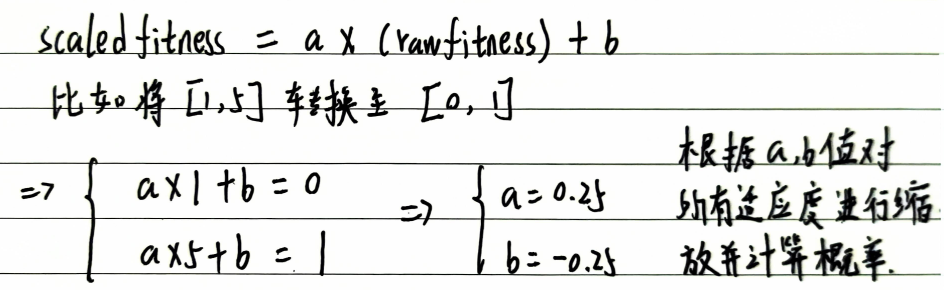 scaled fitness = a × (raw fitness) + b
比如将 [1,5] 转换至 [0,1]
=> { a×1+b=0
a×5+b=1
=> { a=0.25
b=-0.25
根据a,b值对
所有适应度进行缩
放并计算概率.